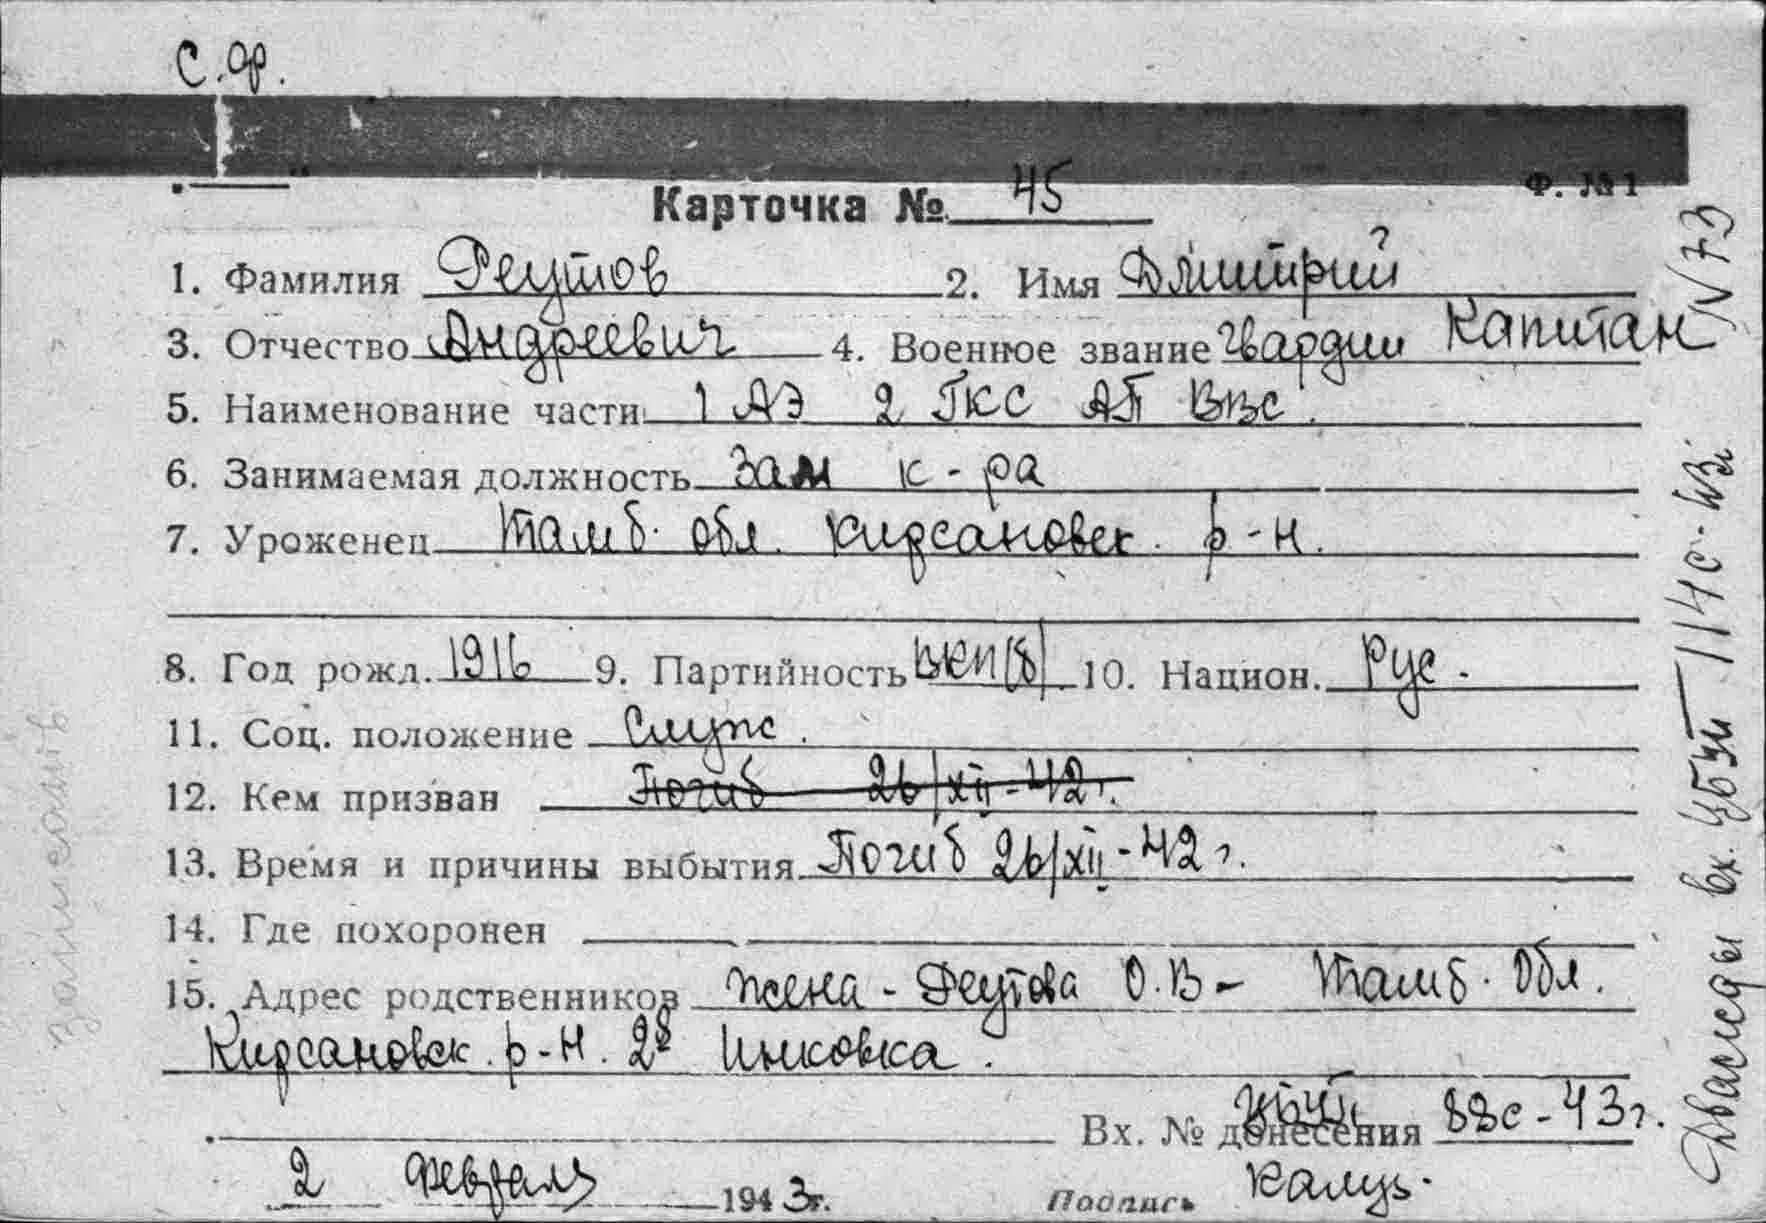 С.ф.
Ф. №1
Карточка № 45
1. Фамилия Реутов 2. Имя Дмитрий
3. Отчество Андреевич 4. Военное звание Гвардии Капитан
5. Наименование части 1 АЭ 2 ГКС АП ВВС.
6. Занимаемая должность Зам к-ра
7. Уроженец Тамб. обл. Кирсановск. р-н.
8. Год рожд. 1916 9. Партийность ВКП(б) 10. Национ. Рус.
11. Соц. положение Служ.
12. Кем призван Погиб 26/XII-42 г.
13. Время и причины выбытия Погиб 26/XII-42 г.
14. Где похоронен
15. Адрес родственников Жена - Реутова О.В - Тамб. Обл.
Кирсановск. р-н. 2я Инковка.
Вх. № донесения 88с-43г.
2 февраля 1943г. Подпись
Дважды вх. 114с-43г N 73
записать